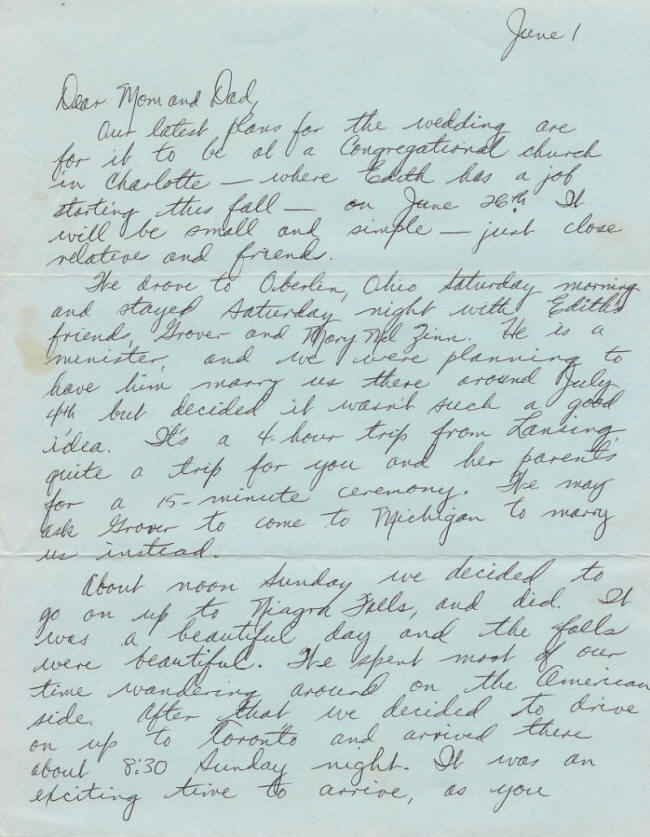 June 1
Dear Mom and Dad,
Our latest plans for the wedding are
for it to be at a Congregational church
in Charlotte — where Edith has a job
starting this fall — on June 26th. It
will be small and simple — just close
relative and friends.
We drove to Oberlin, Ohio Saturday morning
and stayed Saturday night with Edith's
friends, Grover and Mary Nel Zinn. He is a
minister, and we were planning to
have him marry us there around July
4th but decided it wasn't such a good
idea. It's a 4-hour trip from Lansing,
quite a trip for you and her parents
for a 15-minute ceremony. We may
ask Grover to come to Michigan to marry
us instead.
About noon Sunday we decided to
go on up to Niagra Falls, and did. It
was a beautiful day and the falls
were beautiful. We spent most of our
time wandering around on the American
side. After that we decided to drive
on up to Toronto and arrived there
about 8:30 Sunday night. It was an
exciting time to arrive, as you